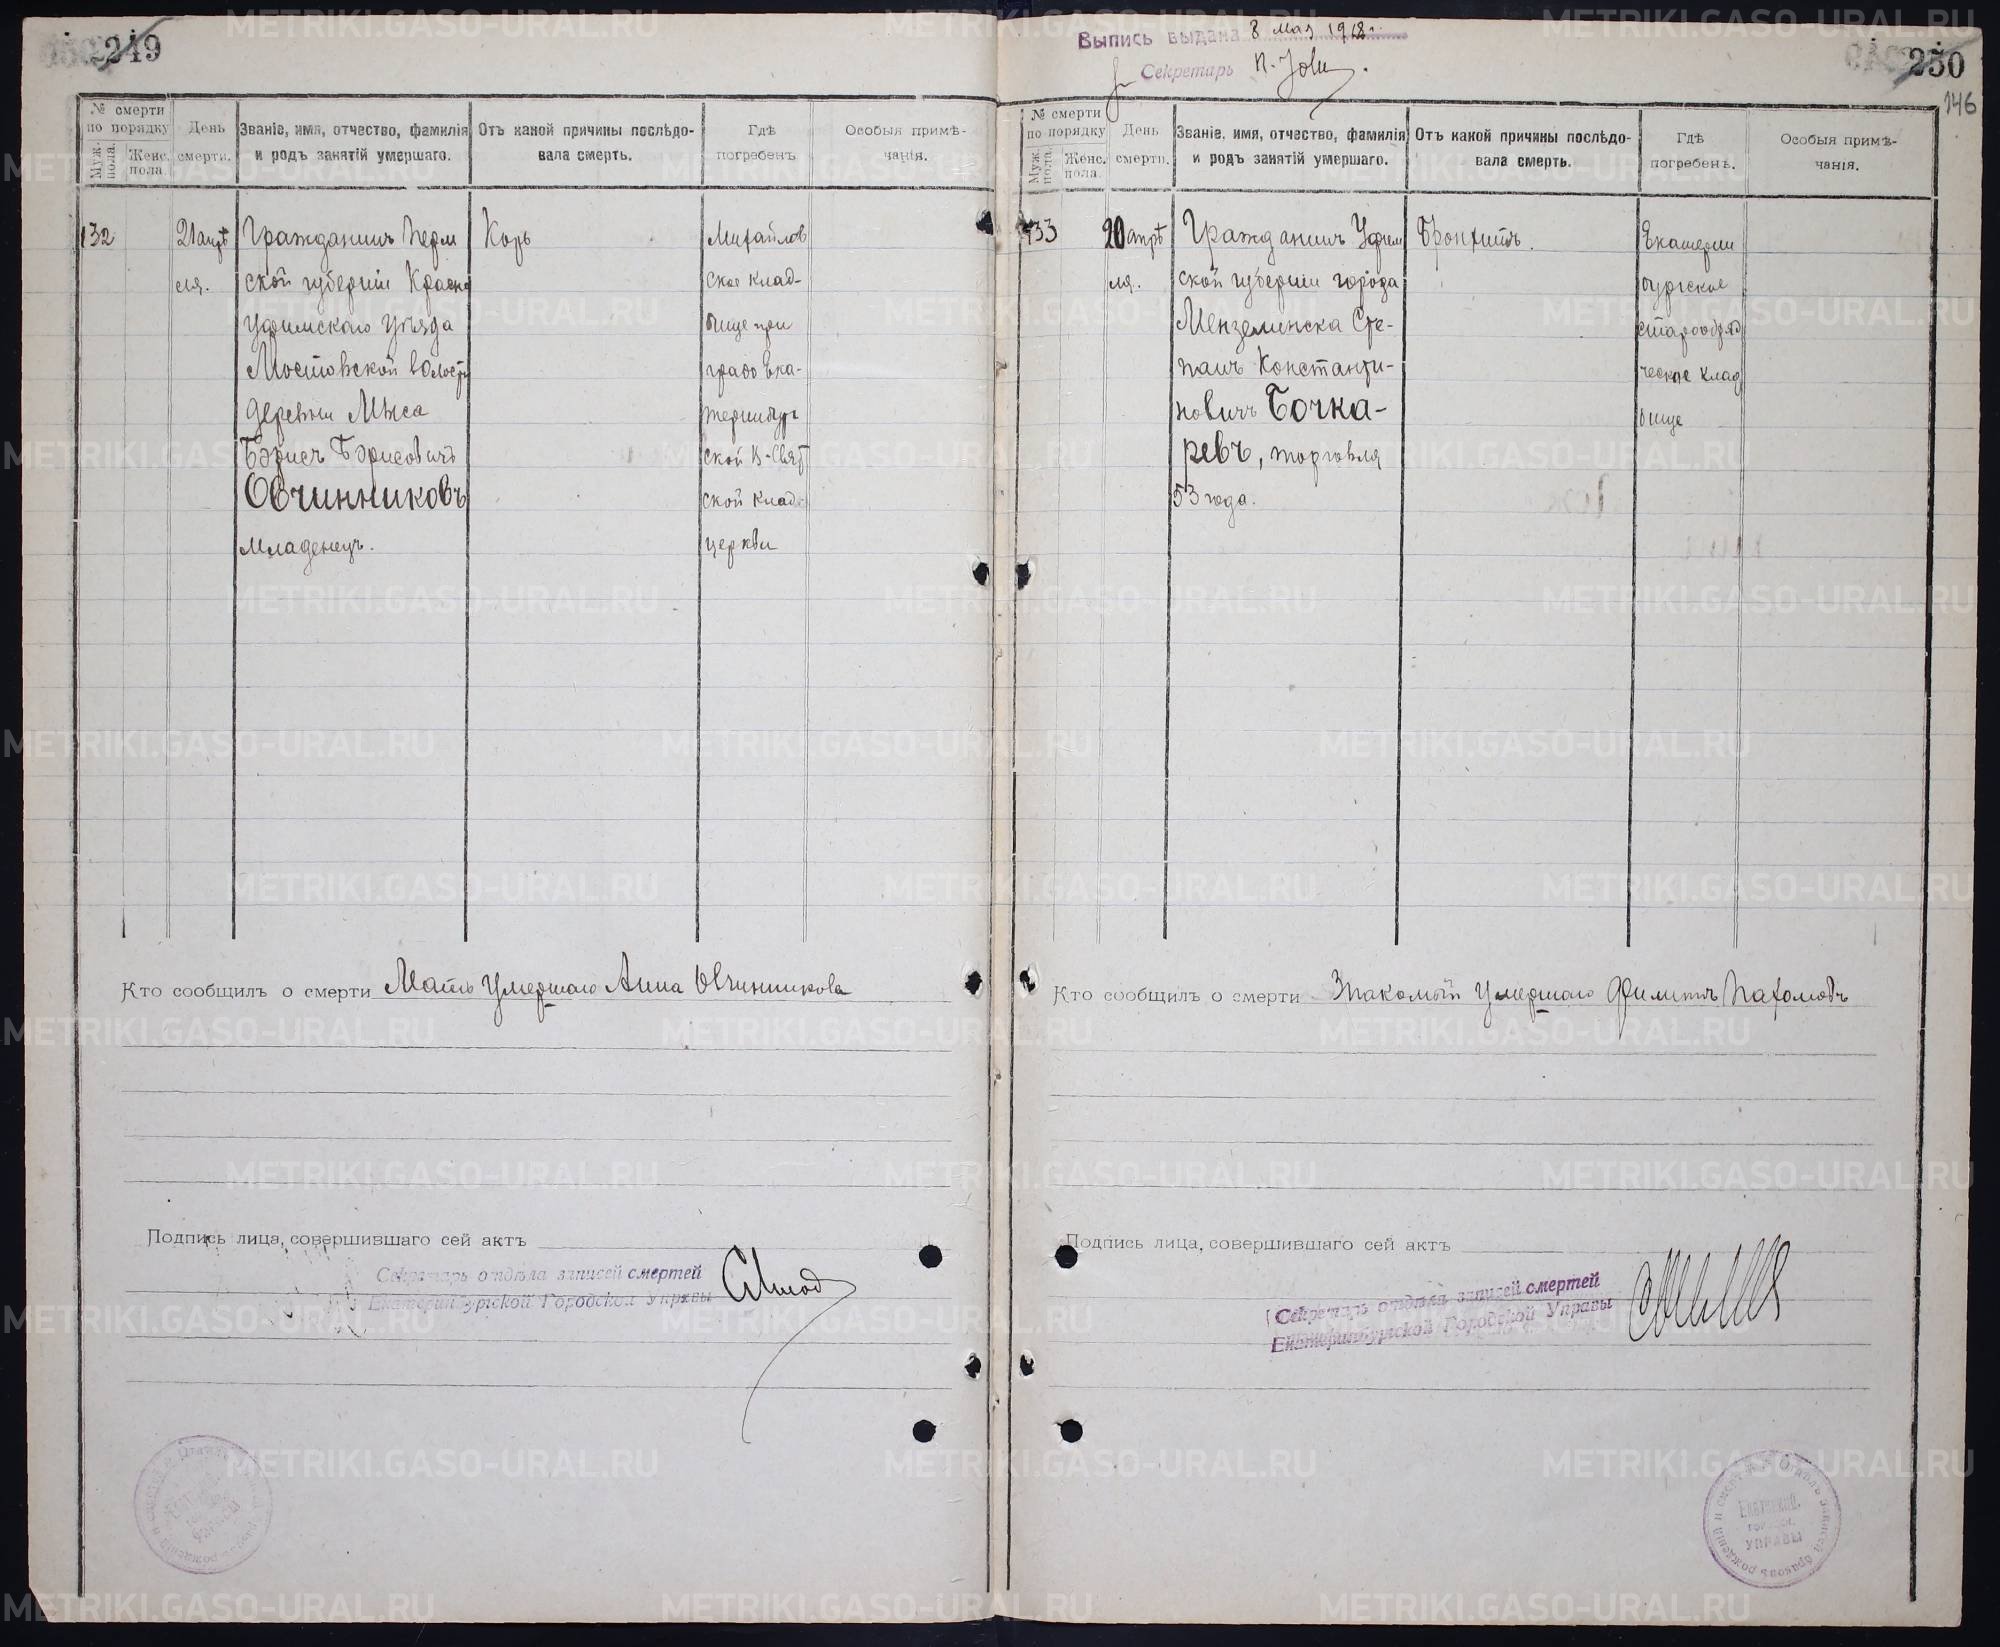 249
№ смерти
по порядку
Муж. пола.
Женс. пола.
День
смерти.
Званіе, имя, отчество, фамилія
и родъ занятій умершаго.
Отъ какой причины послѣдо-
вала смерть.
Гдѣ
погребенъ
Особыя примѣ-
чанія.
132
21 апрѣ
ля.
Гражданинъ Перм
ской губерніи Красно
уфимскаго уѣзда
Мостовской волости
деревни Мыса
Борисъ Борисовичъ
Овчинниковъ
младенецъ.
Корь
Михайлов
ское клад-
бище при
градо Ека-
теринбург
ской В-Свят
ской кладб
церкви
Кто сообщилъ о смерти Мать умершаго Анна Овчинникова
Подпись лица, совершившаго сей актъ
Секретарь отдѣла записей смертей
Екатеринбургской Городской Управы
Выпись выдана 8 мая 1918 г.
Секретарь
250
146
№ смерти
по порядку
Муж. пола.
Женс. пола.
День
смерти.
Званіе, имя, отчество, фамилія
и родъ занятій умершаго.
Отъ какой причины послѣдо-
вала смерть.
Гдѣ
погребенъ.
Особыя примѣ-
чанія.
133
20 апрѣ
ля.
Гражданинъ Уфим
ской губерніи города
Мензелинска Сте-
панъ Константи-
новичъ Бочка-
ревъ, торговля
53 года.
Бронхитъ.
Екатерин
бургское
старообряд
ческое клад
бище
Кто сообщилъ о смерти Знакомый умершаго Филиппъ Пахомовъ
Подпись лица, совершившаго сей актъ
Секретарь отдѣла записей смертей
Екатеринбургской Городской Управы
Отдѣлъ записи браковъ рожденій и смертей
Екатеринб.
городск.
УПРАВЫ
METRIKI.GASO-URAL.RU